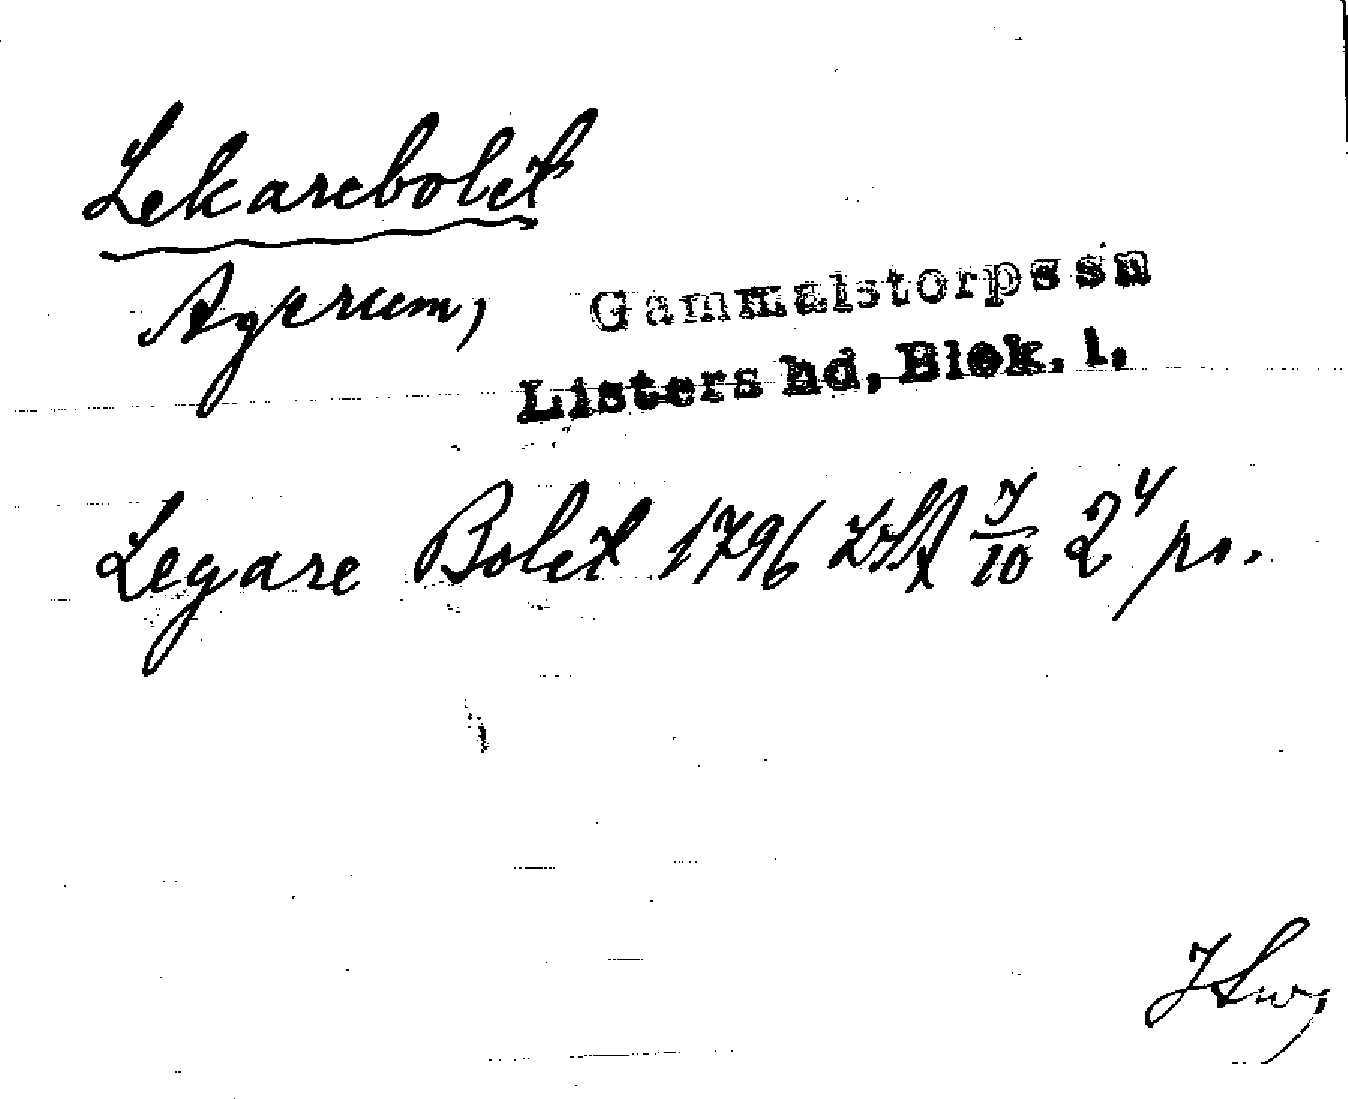 Lekarebolet
Agerum, Gammalstorps sn
Listers hd, Blek. l.
Legare Bolet 1796 LSA 7/10 2⁴ ps.